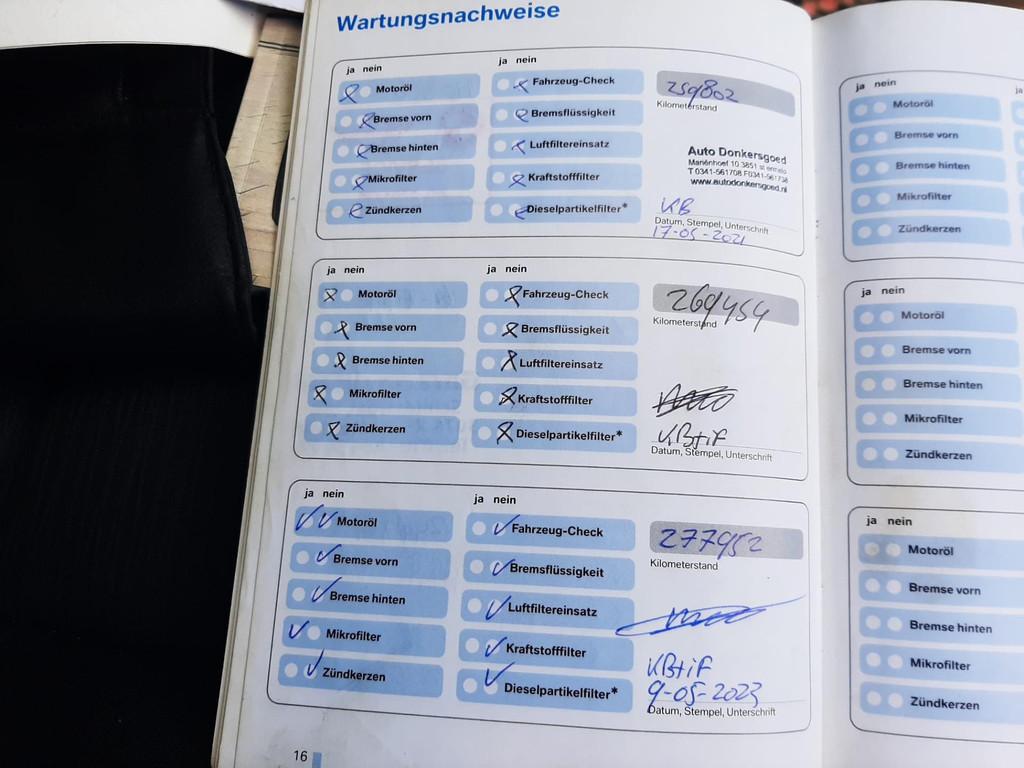 Wartungsnachweise
ja nein
ja nein
Motoröl
Fahrzeug-Check
Bremse vorn
Bremsflüssigkeit
Bremse hinten
Luftfiltereinsatz
Mikrofilter
Kraftstofffilter
Zündkerzen
Dieselpartikelfilter*
259802
Kilometerstand
Auto Donkersgoed
Mariënhoef 10 3851 st ermelo
T 0341-561708 F0341-561738
www.autodonkersgoed.nl
KB
Datum, Stempel, Unterschrift
17-05-2021
ja nein
ja nein
Motoröl
Fahrzeug-Check
Bremse vorn
Bremsflüssigkeit
Bremse hinten
Luftfiltereinsatz
Mikrofilter
Kraftstofffilter
Zündkerzen
Dieselpartikelfilter*
269454
Kilometerstand
KB+iF
Datum, Stempel, Unterschrift
ja nein
ja nein
Motoröl
Fahrzeug-Check
Bremse vorn
Bremsflüssigkeit
Bremse hinten
Luftfiltereinsatz
Mikrofilter
Kraftstofffilter
Zündkerzen
Dieselpartikelfilter*
277952
Kilometerstand
KB+iF
9-05-2023
Datum, Stempel, Unterschrift
16
ja nein
Motoröl
Bremse vorn
Bremse hinten
Mikrofilter
Zündkerzen
ja nein
Motoröl
Bremse vorn
Bremse hinten
Mikrofilter
Zündkerzen
ja nein
Motoröl
Bremse vorn
Bremse hinten
Mikrofilter
Zündkerzen